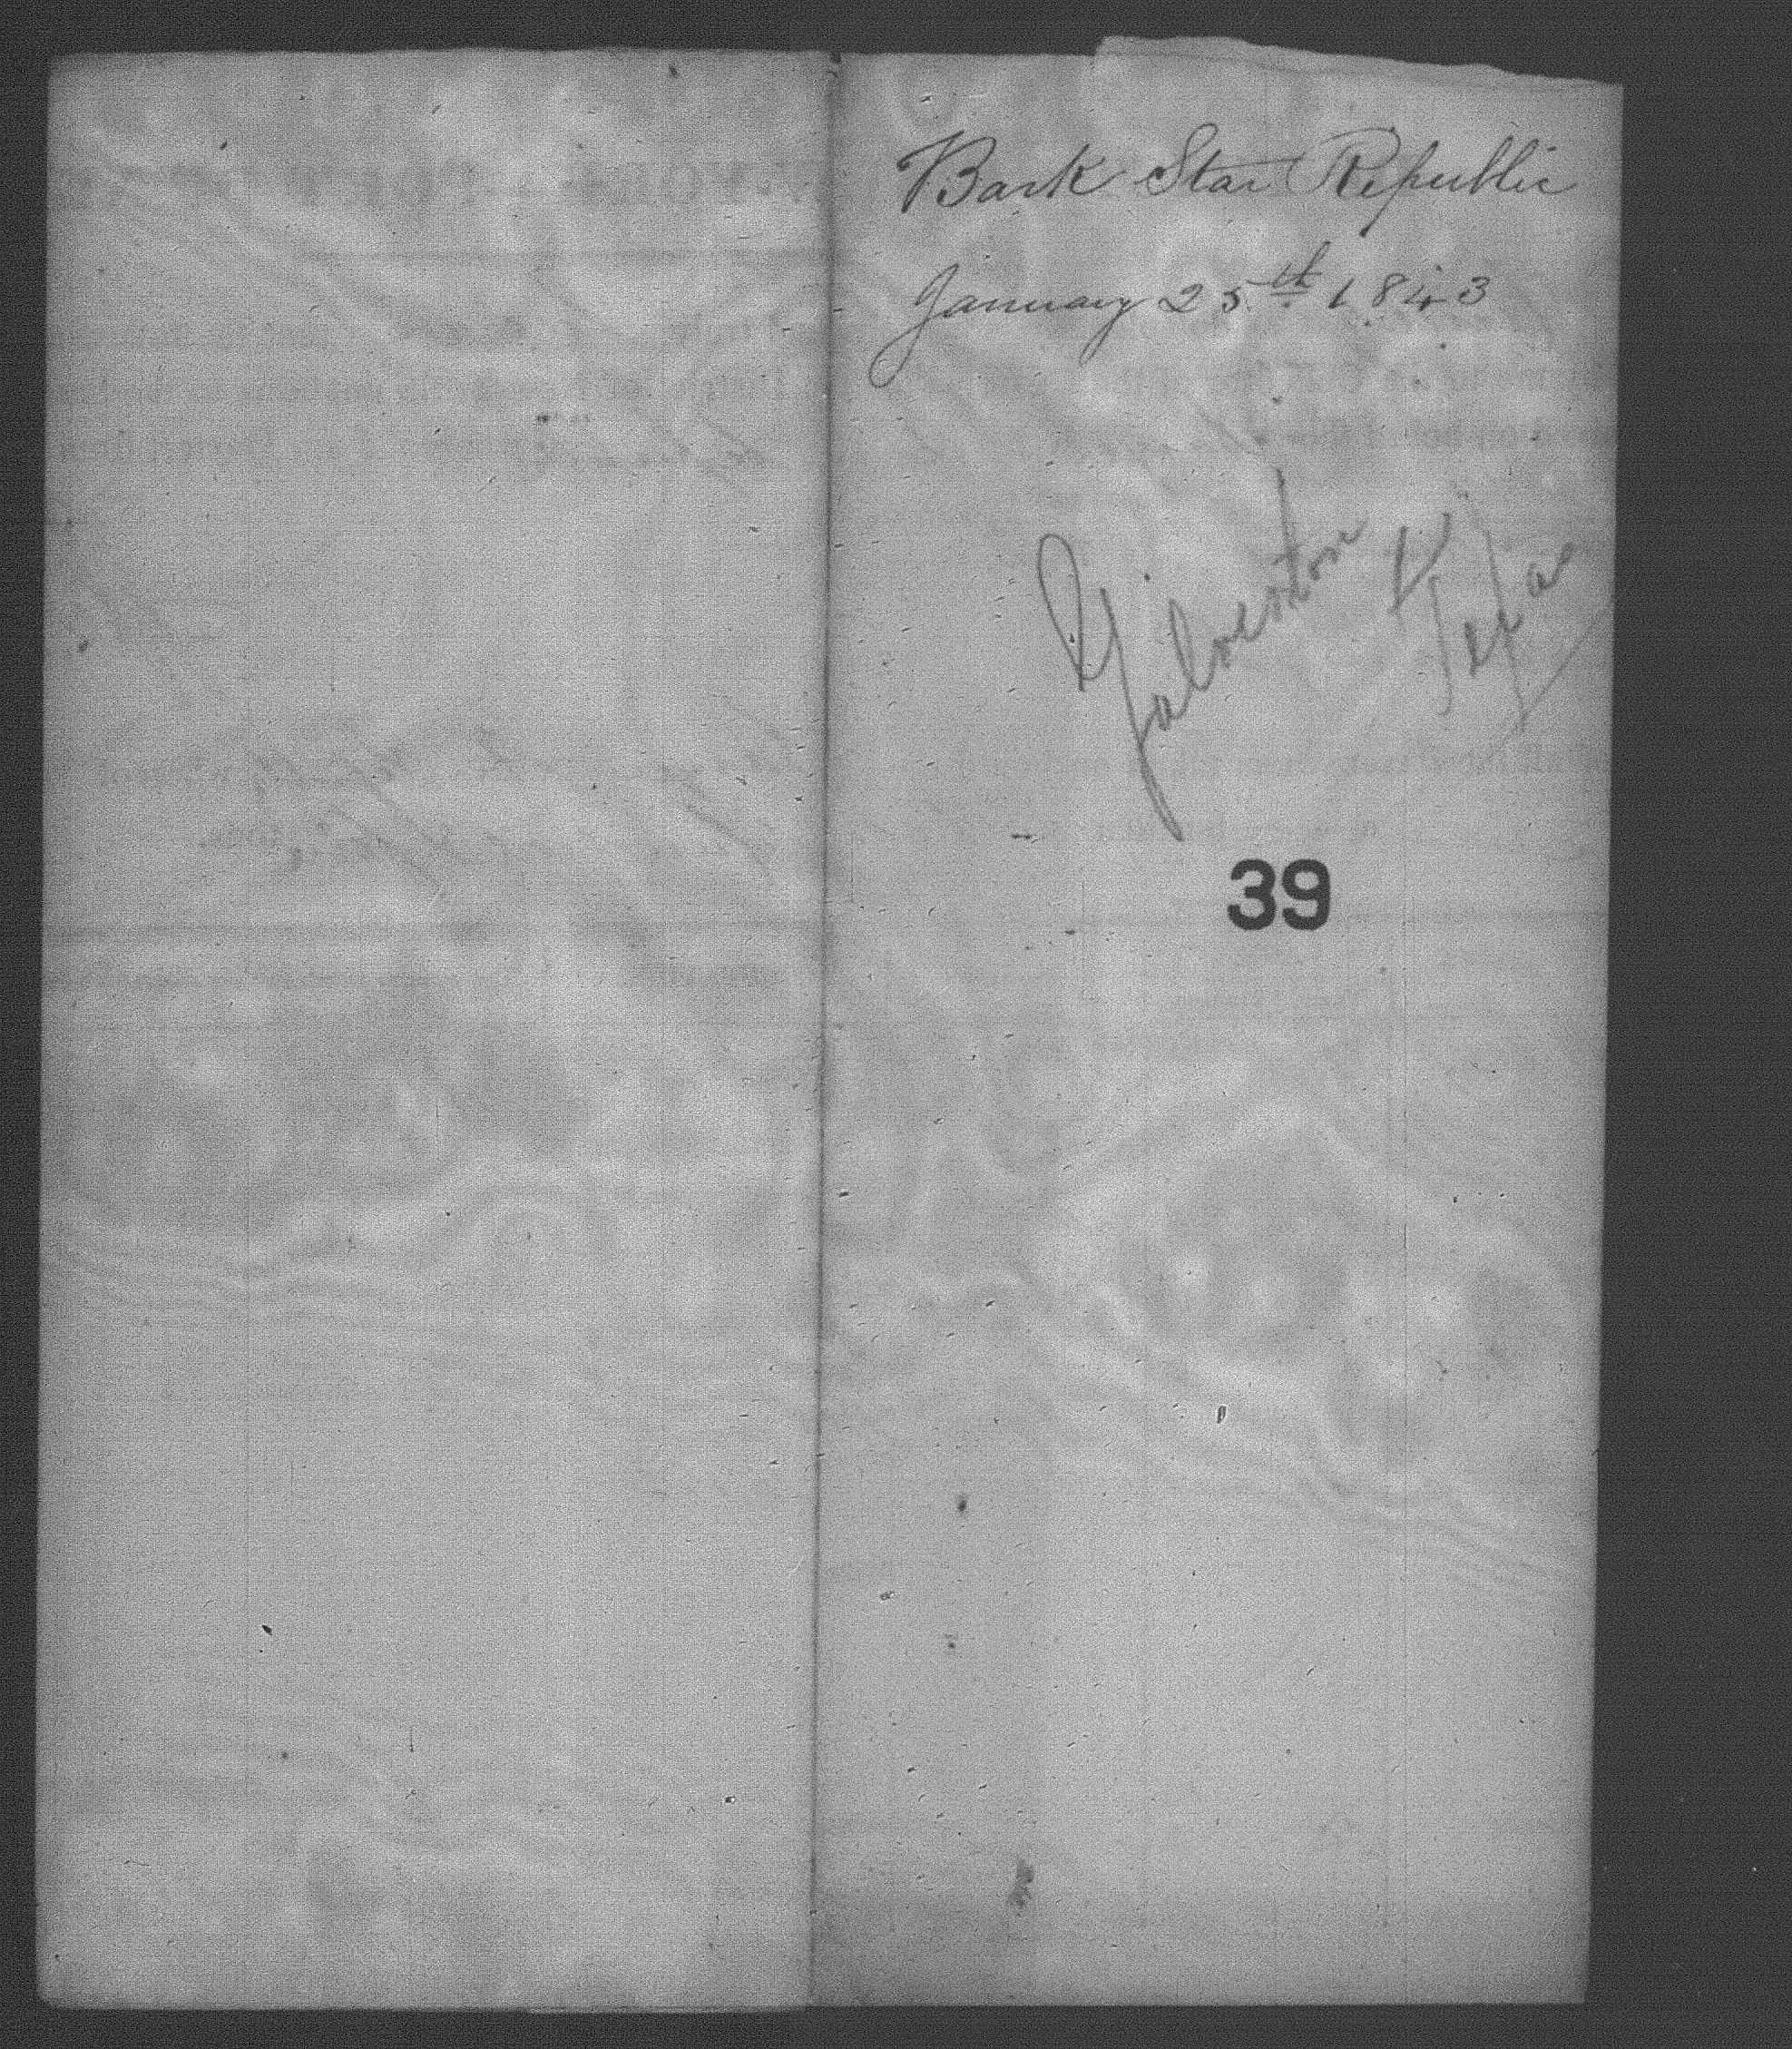 Bark Star Republic
January 25th 1843
Galveston
Texas
39